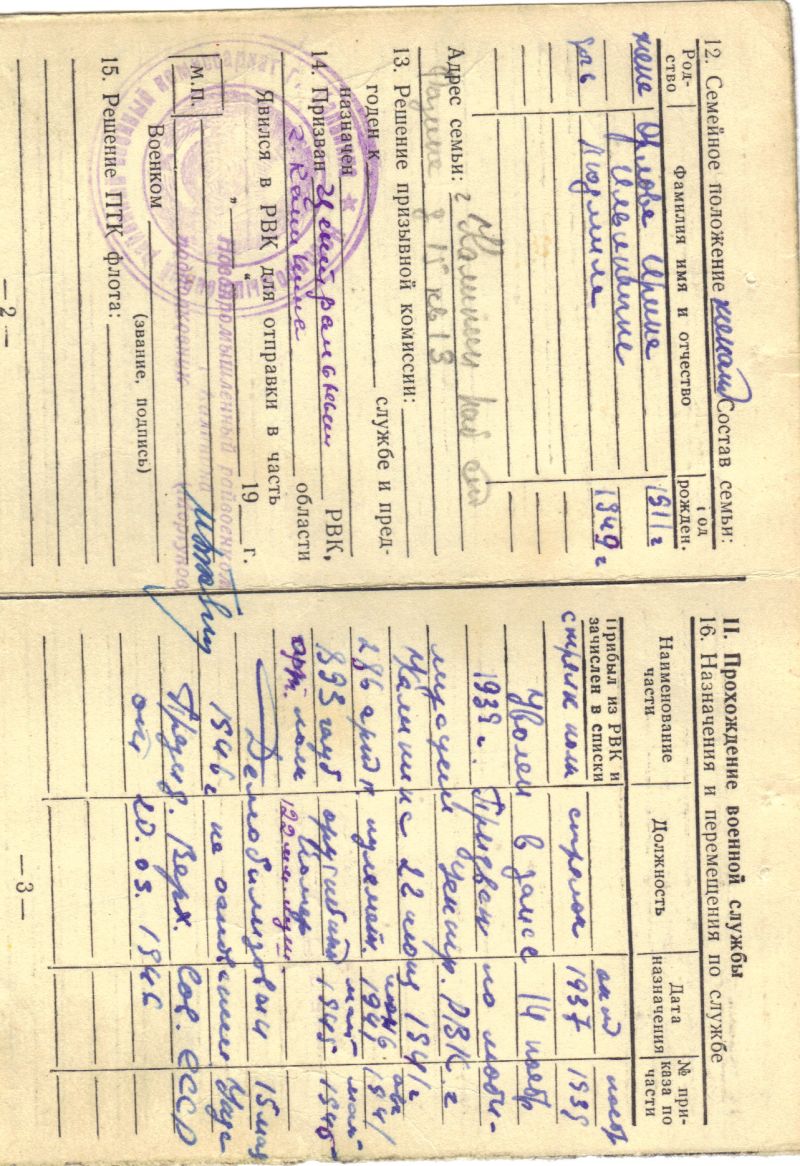 12. Семейное положение женат Состав семьи:
Род-
ство
Фамилия имя и отчество
год
рожден.
жена Орлова Ирина 1911 г
дочь Людмила 1949 г
Адрес семьи: г Калинин
13. Решение призывной комиссии:
годен к службе и пред-
назначен
14. Призван Центральным РВК,
г. Калинина области
Явился в РВК для отправки в часть
„ “ 19 г.
М.П.
Новопромышленный райвоенком
г. Калинина
подполковник
Военком
(звание, подпись)
15. Решение ПТК флота:
— 2 —
II. Прохождение военной службы
16. Назначения и перемещения по службе
Наименование
части
Должность
Дата
назначения
№ при-
каза по
части
Прибыл из РВК и
зачислен в списки
стрелк полк стрелок 1937 1939
Уволен в запас 14 нояб
1939 г. Призван по моби-
лизации Центр. РВК г
Калинина 22 июня 1941 г
286 1941 1941
893 гауб 1945
арт. полк 122 мм.
Демобилизован 15 мая
1946 г на основании Указа
Презид. Верх. Сов. СССР
от 20.03.1946
— 3 —